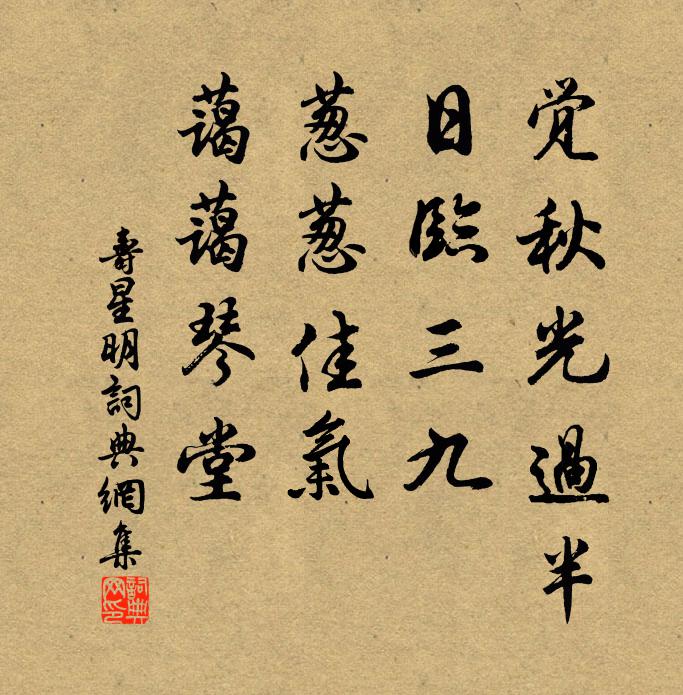 覚秋光過半
日臨三九
葱葱佳氣
藹藹琴堂
壽星明詞典網集
詞典網印